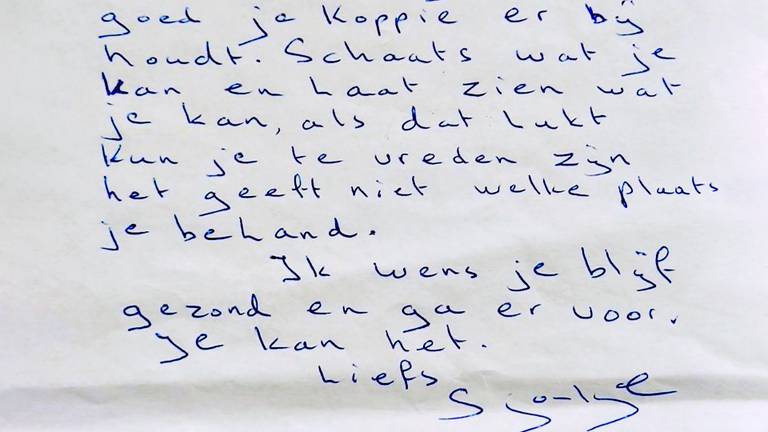 goed je koppie er bij
houdt. Schaats wat je
kan en laat zien wat
je kan, als dat lukt
kun je te vreden zijn
het geeft niet welke plaats
je behand.
Ik wens je blijf
gezond en ga er voor.
Je kan het.
Liefs
Sjoukje